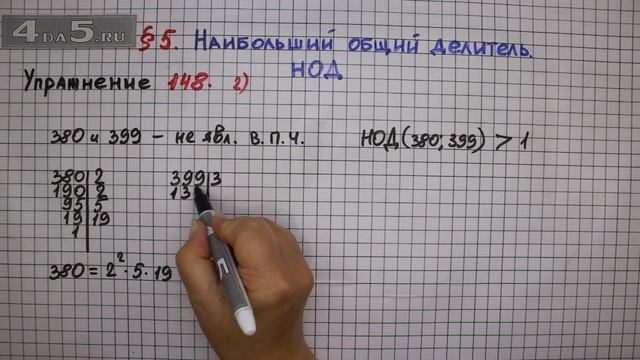 4DA5.RU
§5. Наибольший общий делитель.
НОД
Упражнение 148. 2)
380 и 399 – не явл. в.п.ч. НОД(380; 399) > 1
380 2 399 3
190 2 13
95 5
19 19
1
380 = 2² · 5 · 19